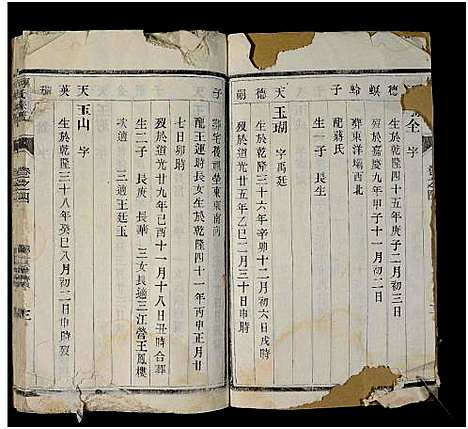 德
全 字
生於乾隆四十五年庚子二月初三日
螟
歿於嘉慶九年甲子十一月
葬東洋塥西北
龍蔣氏
子
生一子 長生
天
玉瑚 字禹廷
德
生於乾隆三十六年辛卯十二月初六日戌時
嗣
歿於道光廿五年乙巳二月三十日申時
子
葬宅後祖塋東東南
龍王運時長女生於乾隆四十一年丙申正月廿
七日卯時
歿於道光廿九年己酉十一月十八日丑時合葬
生二子 長庚 長華 三女長適三江營王鳳樓
次適 三適王廷玉
天
玉山 字
英
生於乾隆三十八年癸巳八月初二日申時歿
卷之四
卷之四